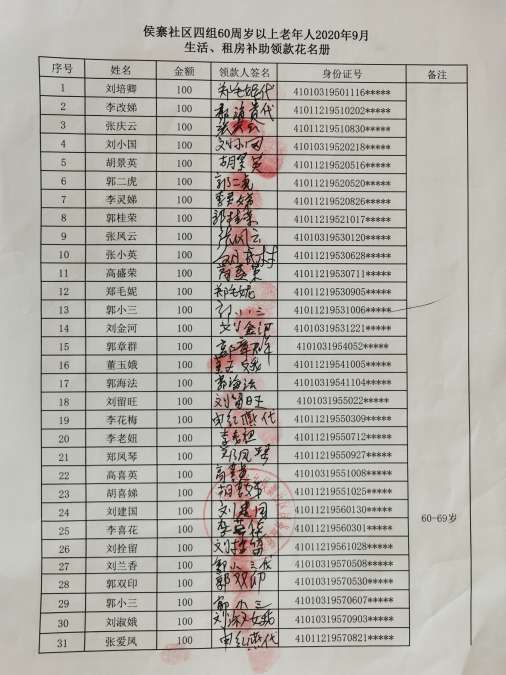 侯寨社区四组60周岁以上老年人2020年9月
生活、租房补助领款花名册
序号 姓名 金额 领款人签名 身份证号 备注
1 刘培卿 100 郑毛妮代 41010319501116*****
2 李改娣 100 41011219510202*****
3 张庆云 100 张庆云 41011219510830*****
4 刘小国 100 刘小国 41010319520218*****
5 胡景英 100 胡景英 41011219520516*****
6 郭二虎 100 郭二虎 41011219520520*****
7 李灵娣 100 李灵娣 41011219520826*****
8 郭桂荣 100 郭桂荣 41011219521017*****
9 张凤云 100 张凤云 41010319530120*****
10 张小英 100 41011219530628*****
11 高盛荣 100 41011219530711*****
12 郑毛妮 100 郑毛妮 41011219530905*****
13 郭小三 100 郭小三 41011219531006*****
14 刘金河 100 刘金河 41010319531221*****
15 郭章群 100 4101031954052*****
16 董玉娥 100 41011219541005*****
17 郭海法 100 郭海法 41010319541104*****
18 刘留旺 100 刘留旺 4101031955022*****
19 李花梅 100 41011219550309*****
20 李老妞 100 李老妞 41011219550712*****
21 郑凤琴 100 郑凤琴 41011219550927*****
22 高喜英 100 高喜英 41010319551008*****
23 胡喜娣 100 胡喜娣 41011219551025*****
24 刘建国 100 刘建国 41011219560130*****
25 李喜花 100 41011219560301*****
26 刘拴留 100 刘拴留 41011219561028*****
27 刘兰香 100 郭小三代 41010319570508*****
28 郭双印 100 郭双印 41010319570530*****
29 郭小三 100 郭小三 41010319570607*****
30 刘淑娥 100 刘淑娥 41010319570903*****
31 张爱凤 100 41011219570821*****
60-69岁